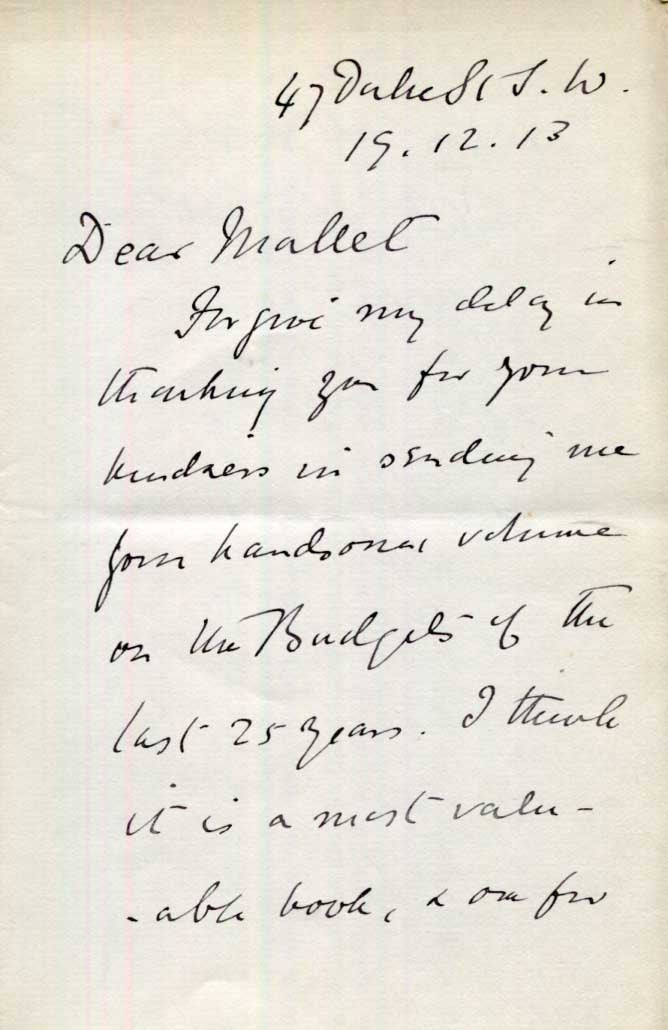 47 Duke St S.W.
19.12.13
Dear Mallet
Forgive my delay in
thanking you for your
kindness in sending me
your handsome volume
on the Budgets of the
last 25 years. I think
it is a most valu-
-able book, & one for